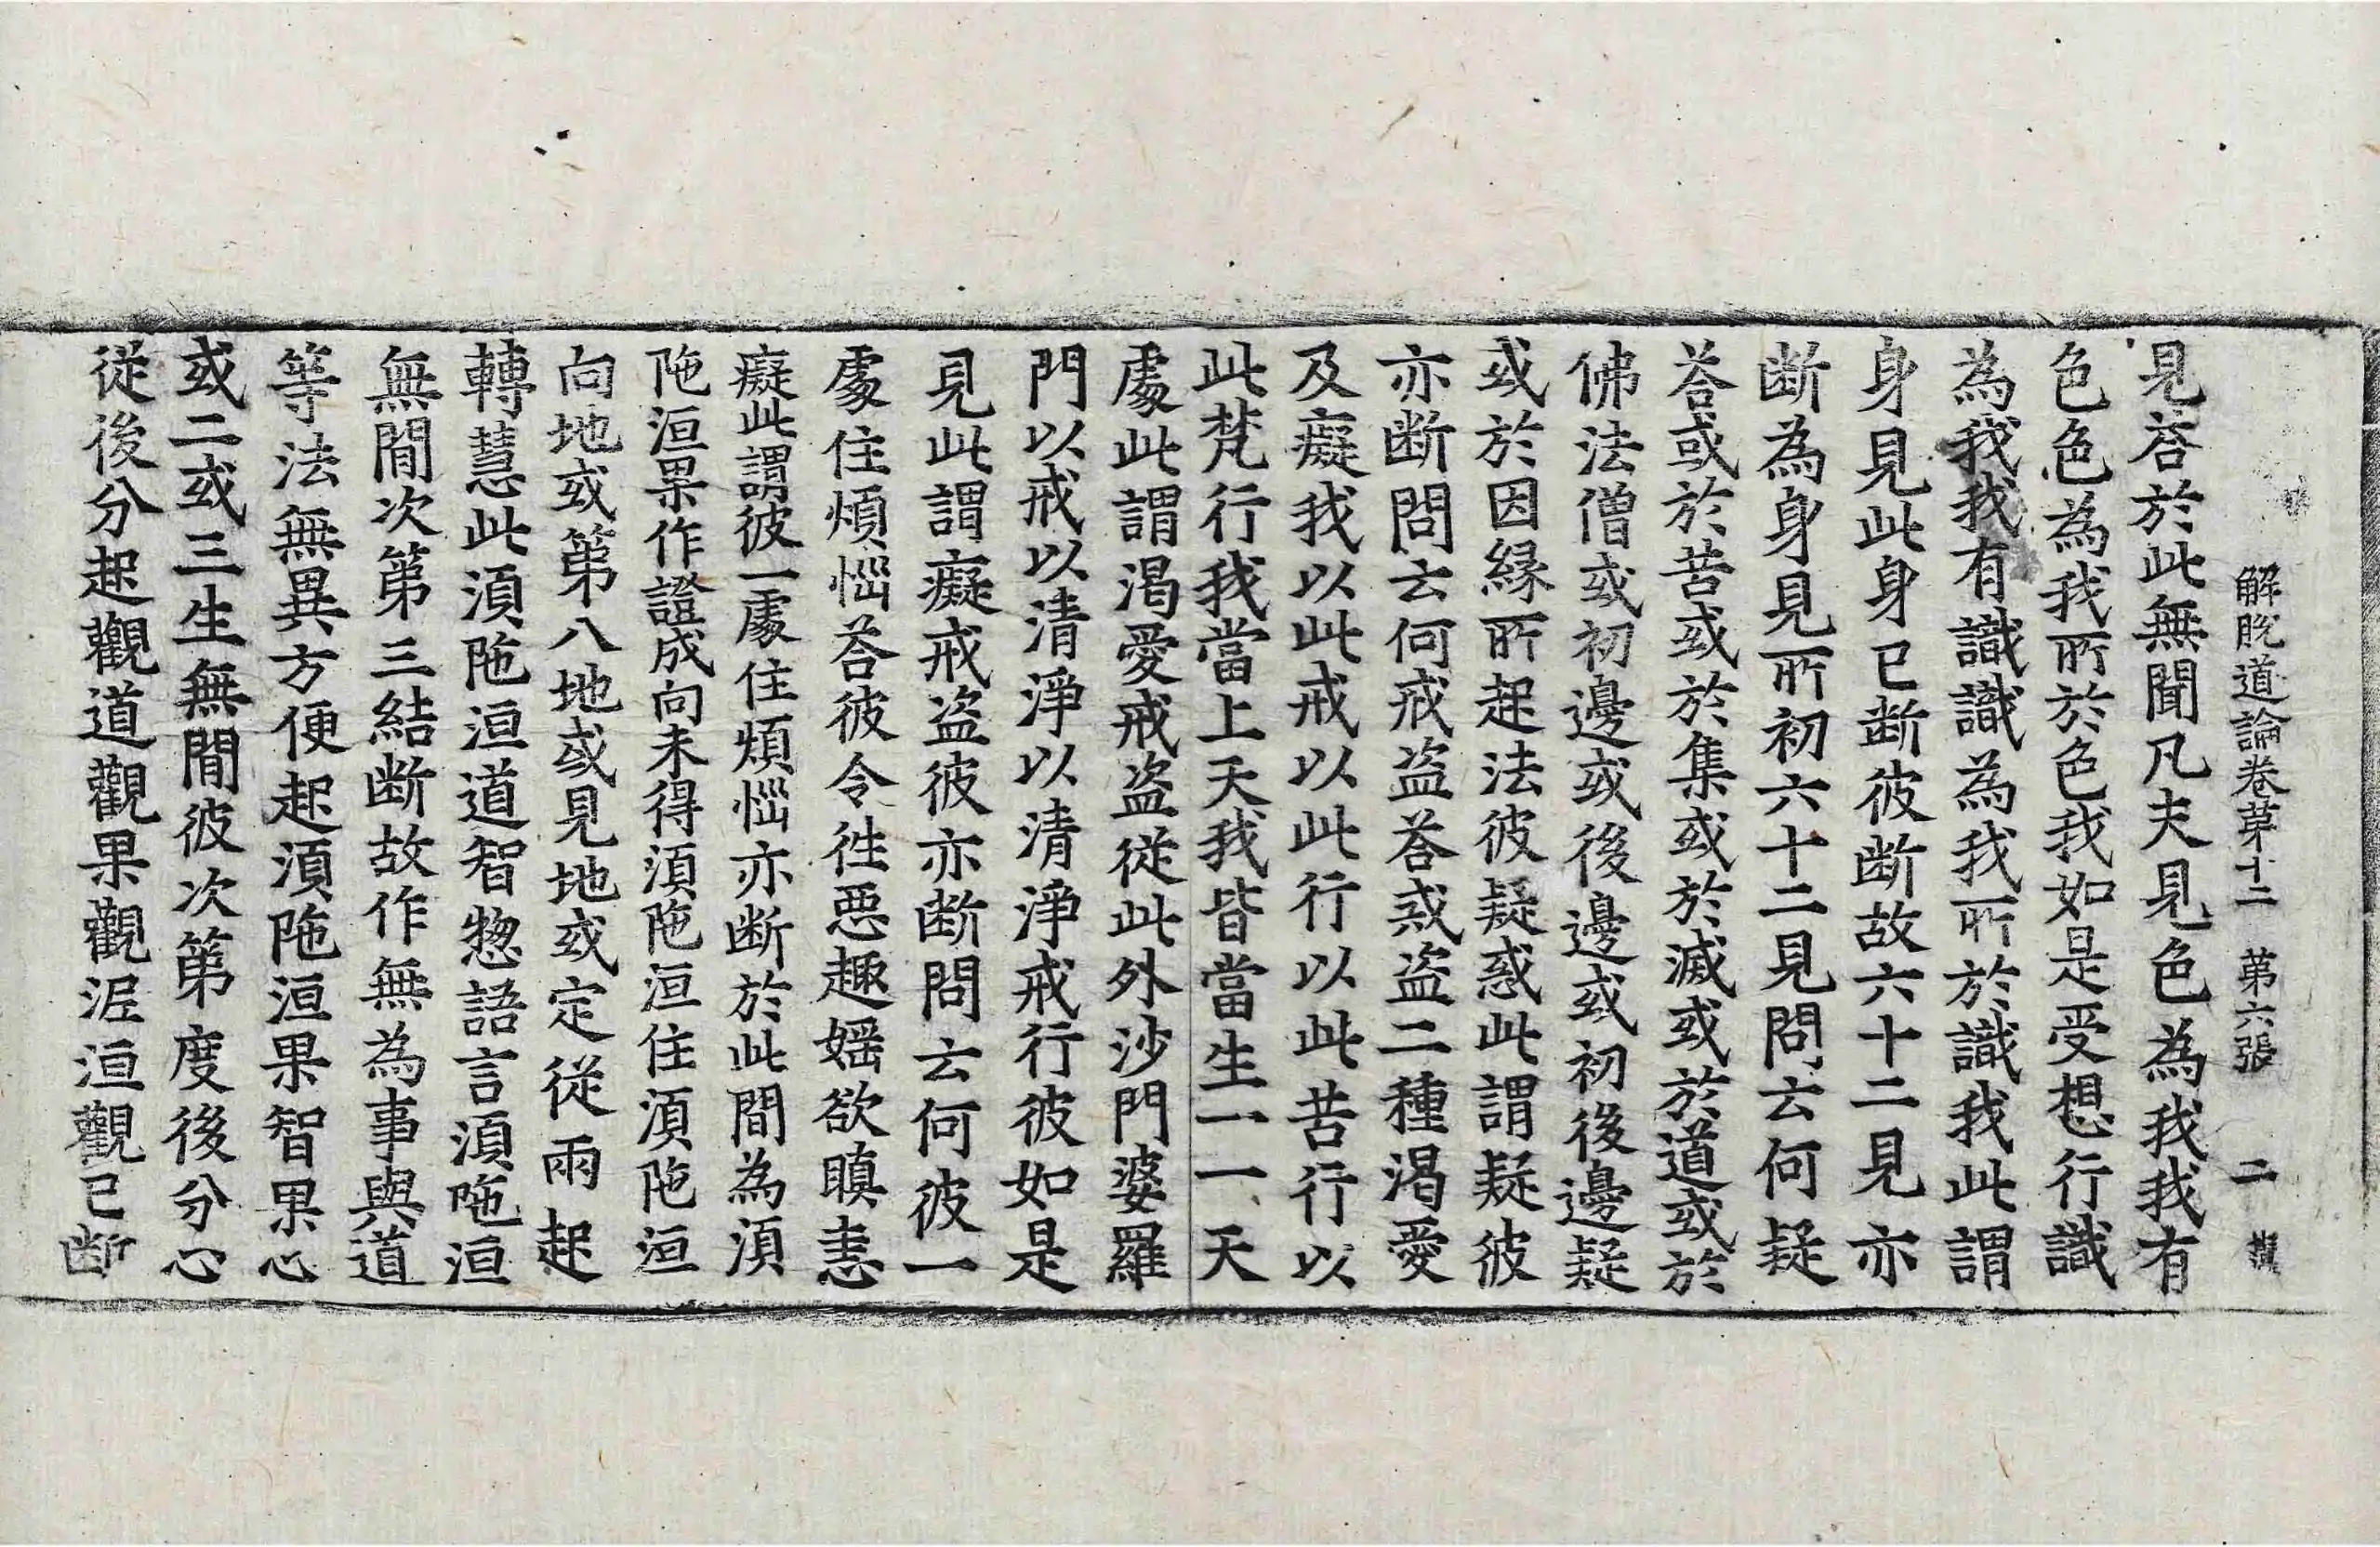 解脫道論卷苐十二　第六張　二
見荅於此無聞凡夫見色為我我有
色色為我所於色我如是受想行識
為我我有識識為我所於識我此謂
身見此身已断彼断故六十二見亦
断為身見所初六十二見問云何疑
荅或於苦或於集或於滅或於道或於
佛法僧或初邊或後邊或初後邊疑
或於因緣所起法彼疑惑此謂疑彼
亦断問云何戒盗荅戒盗二種渴愛
及癡我以此戒以此行以此苦行以
此梵行我當上天我皆當生一一天
處此謂渴愛戒盗從此外沙門婆羅
門以戒以清淨以清淨戒行彼如是
見此謂癡戒盗彼亦断問云何彼一
處住煩惱荅彼令徃惡趣婬欲瞋恚
癡此謂彼一處住煩惱亦断於此間為湏
陁洹果作證成向未得湏陁洹住湏陁洹
向地或第八地或見地或定從兩起
轉慧此湏陁洹道智惣語言湏陁洹
無間次第三結断故作無為事與道
等法無異方便起湏陁洹果智果心
或二或三生無間彼次第度後分心
從後分起觀道觀果觀涅洹觀已断